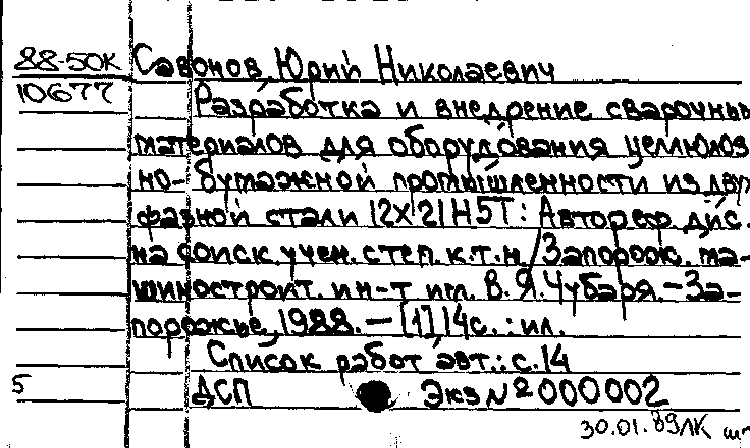 88-50К Савонов, Юрий Николаевич
10677 Разработка и внедрение сварочных
материалов для оборудования целлюлоз
но-бумажной промышленности из двух
фазной стали 12Х21Н5Т: Автореф. дис.
на соиск. учен. степ. к.т.н. / Запорож. ма-
шиностроит. ин-т им. В.Я. Чубаря. - За-
порожье, 1988. - [1] 14 с. : ил.
Список работ авт.: с. 14
5 ДСП Экз № 000002
30.01.89 ЛК